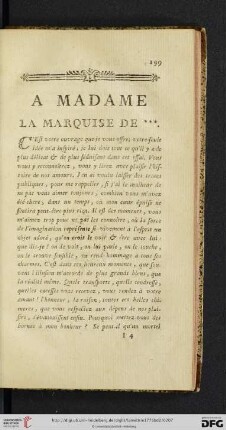 199
A MADAME
LA MARQUISE DE ***.
C'est votre ouvrage que je vous offre; votre seule
idée m'a inspiré; je lui dois tout ce qu'il y a de
plus délicat & de plus séduisant dans cet essai. Vous
vous y reconnoîtrez, vous y lirez avec plaisir l'his-
toire de nos amours. J'en ai voulu laisser des traces
publiques, pour me rappeller, si j'ai le malheur de
ne pas vous aimer toujours, combien vous m'avez
été chere, dans un temps, où mon cœur épuisé ne
sentira peut-être plus rien. Il est des momens, vous
m'aimez trop pour ne pas les connoître, où la force
de l'imagination représente si vivement à l'esprit un
objet adoré, qu'on croit le voir & être avec lui:
que dis-je! on le voit, on lui parle, on le touche,
on le trouve sensible, on rend hommage à tous ses
charmes. C'est dans ces heureux momens, que sou-
vent l'illusion m'accorde de plus grands biens, que
la réalité même. Quels transports, quelle tendresse,
quelles caresses vous recevez, vous rendez à votre
amant! l'honneur, la raison,
mes, qui vous
sirs, s'évanouissent enfin. Pourquoi
bornés à mon bonheur! Se peut-il qu'un mortel
I 4
DFG